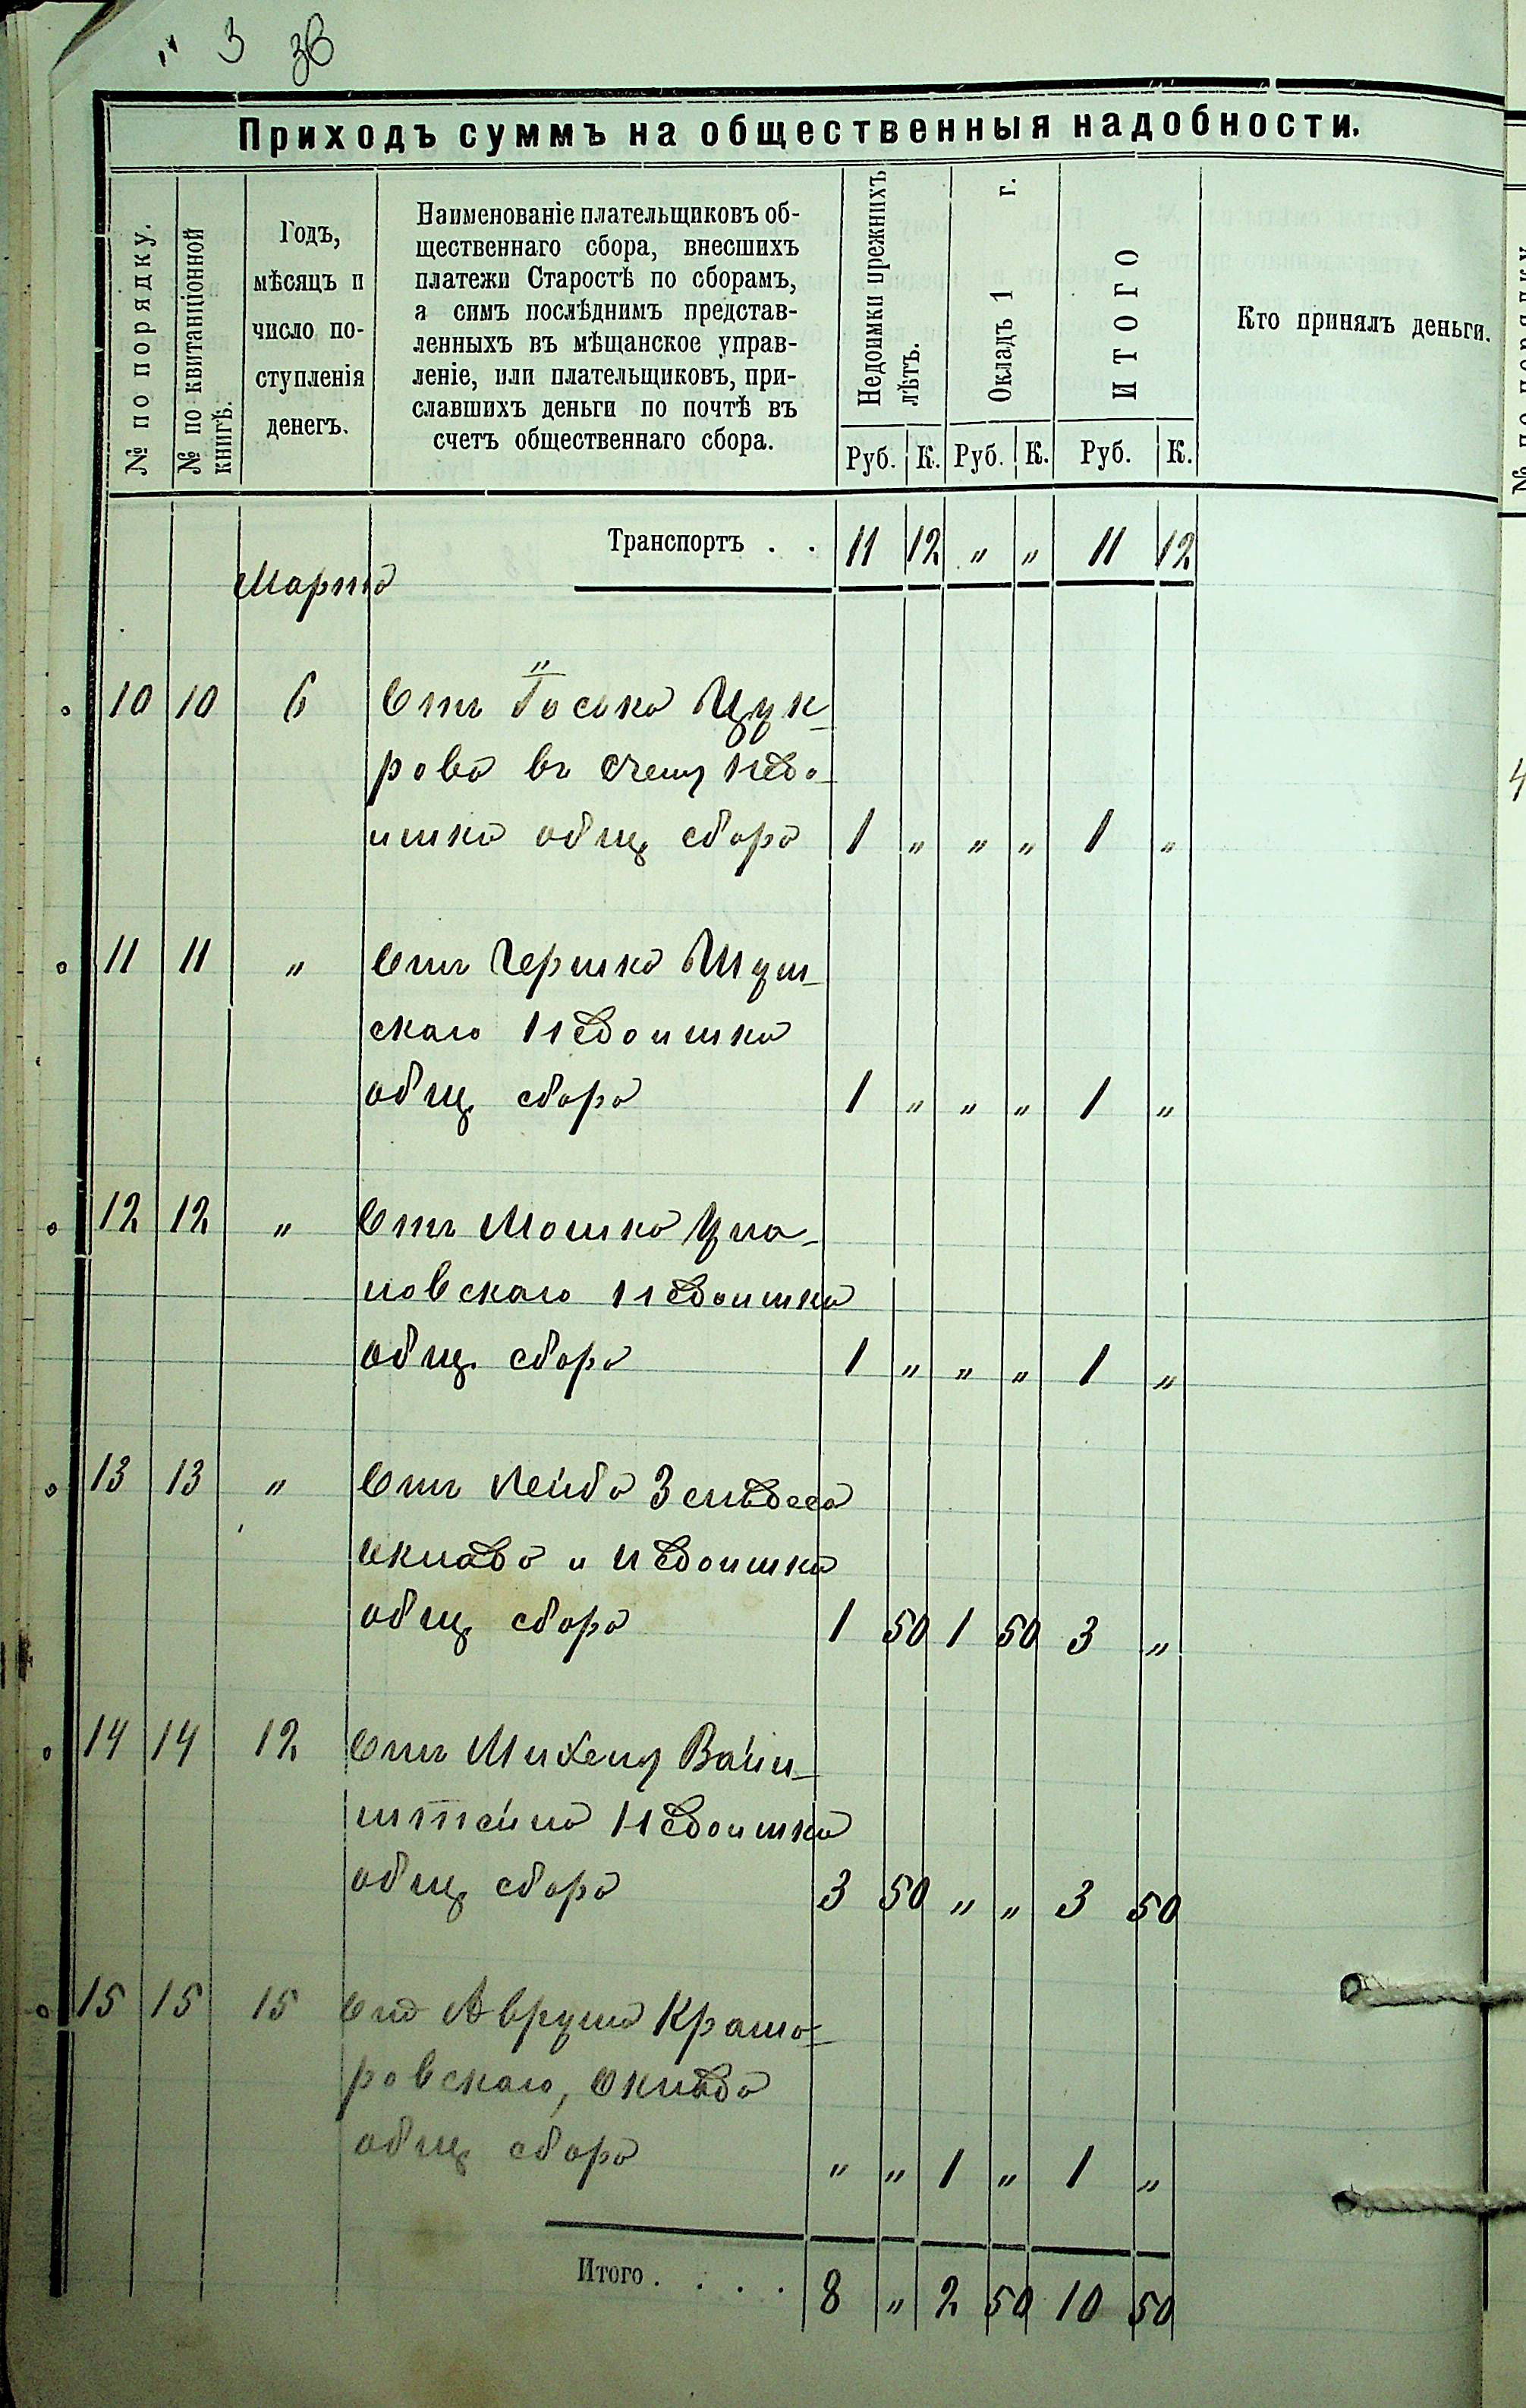 „ 3 зв
Приходъ суммъ на общественныя надобности.
№ по порядку.
№ по квитанціонной
книгѣ.
Годъ,
мѣсяцъ и
число по-
ступленія
денегъ.
Наименованіе плательщиковъ об-
щественнаго сбора, внесшихъ
платежи Старостѣ по сборамъ,
а симъ послѣднимъ представ-
ленныхъ въ мѣщанское управ-
леніе, или плательщиковъ, при-
славшихъ деньги по почтѣ въ
счетъ общественнаго сбора.
Недоимки прежнихъ
лѣтъ.
Окладъ 1 г.
ИТОГО
Кто принялъ деньги.
Руб. К. Руб. К. Руб. К.
Транспортъ . . 11 12 „ „ 11 12
Марта
10 10 6 Отъ Іоська Цук-
рова въ счету недо-
имка общ сбора 1 „ „ „ 1 „
11 11 „ Отъ Гершка
скаго недоимка
общ сбора 1 „ „ „ 1 „
12 12 „ Отъ Мошка Ума-
новскаго недоимка
общ. сбора 1 „ „ „ 1 „
13 13 „ Отъ Лейба
оклада и недоимка
общ сбора 1 50 1 50 3 „
14 14 12 Отъ Михеля Вайн-
штейна недоимка
общ сбора 3 50 „ „ 3 50
15 15 15 Отъ Аврума Крамо-
ровскаго, оклада
общ сбора „ „ 1 „ 1 „
Итого. . . . 8 „ 2 50 10 50